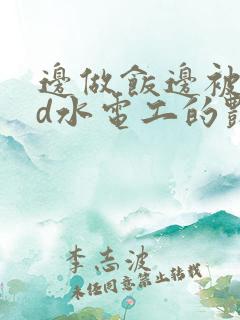 邊做飯邊被
d水電工的
李志波
未经同意禁止转载